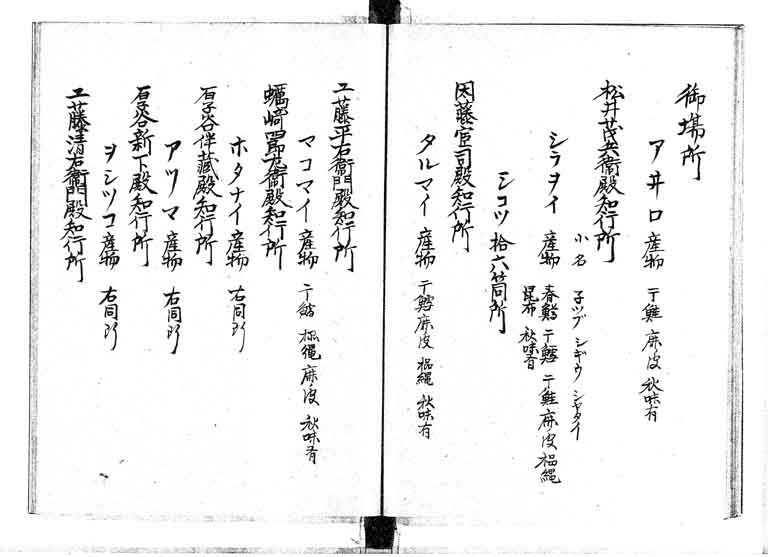 御場所
アヰロ 産物 干鮭 鹿皮 秋味有
松井茂兵衛殿知行所
小名 子ツプ シキウ シヤタイ
シラヲイ 産物 春鯡 干鱈 干鮭 鹿皮 榀縄
昆布 秋味有
シコツ 拾六箇所
因藤宦司殿知行所
タルマイ 産物 干鱈 鹿皮 榀縄 秋味有
工藤平右衛門殿知行所
マコマイ 産物 干 榀縄 鹿皮 秋味有
蠣崎四郎左衛門殿知行所
ホタナイ 産物 右同断
石谷伴蔵殿知行所
アツマ 産物 右同断
石谷新下殿知行所
ヲシツコ 産物 右同断
工藤清右衛門殿知行所